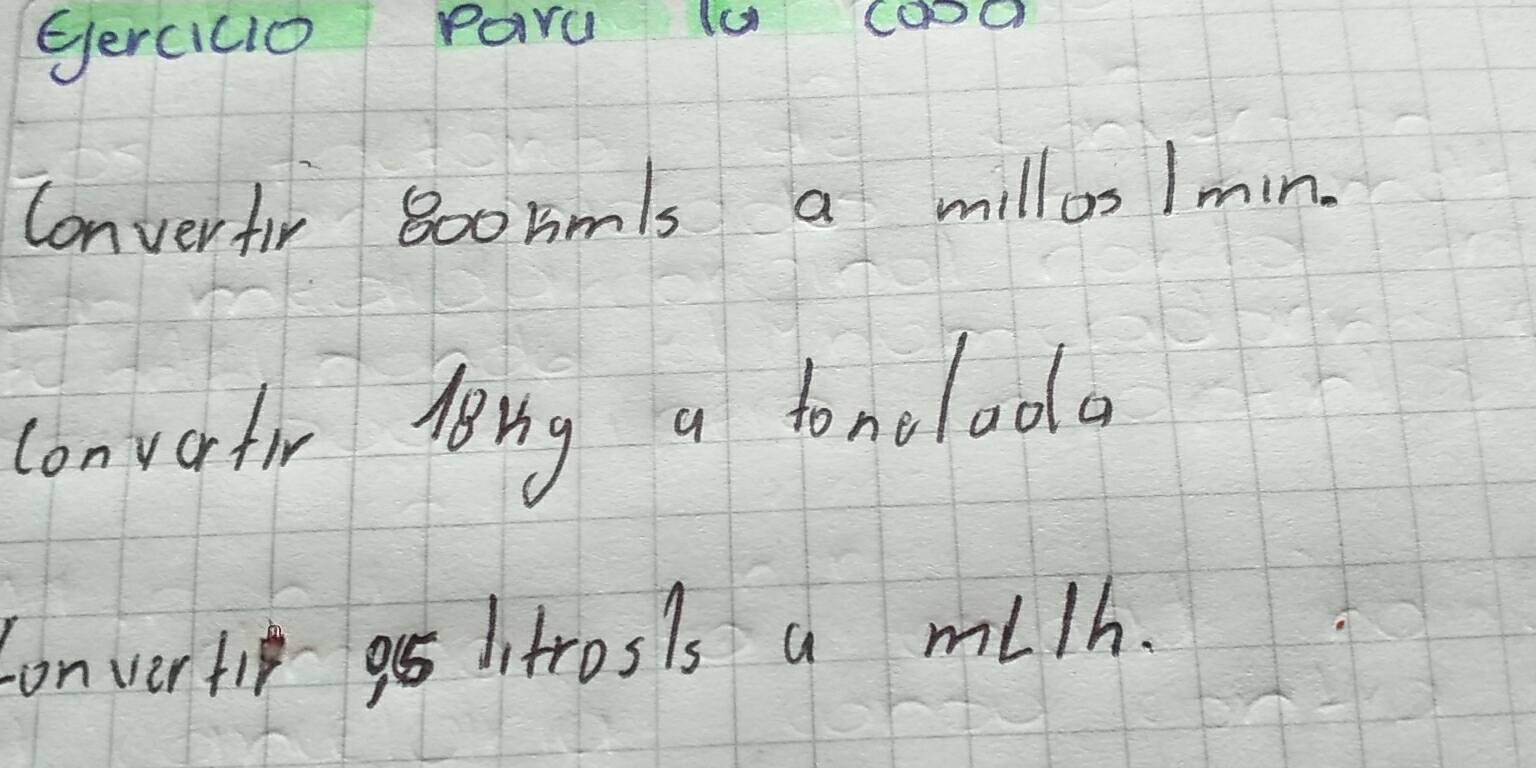 Ejercicio para la casa
Convertir 800km/s a millas/min.
Convertir 18kg a tonelada
Convertir 0,5 litros/s a mL/h.